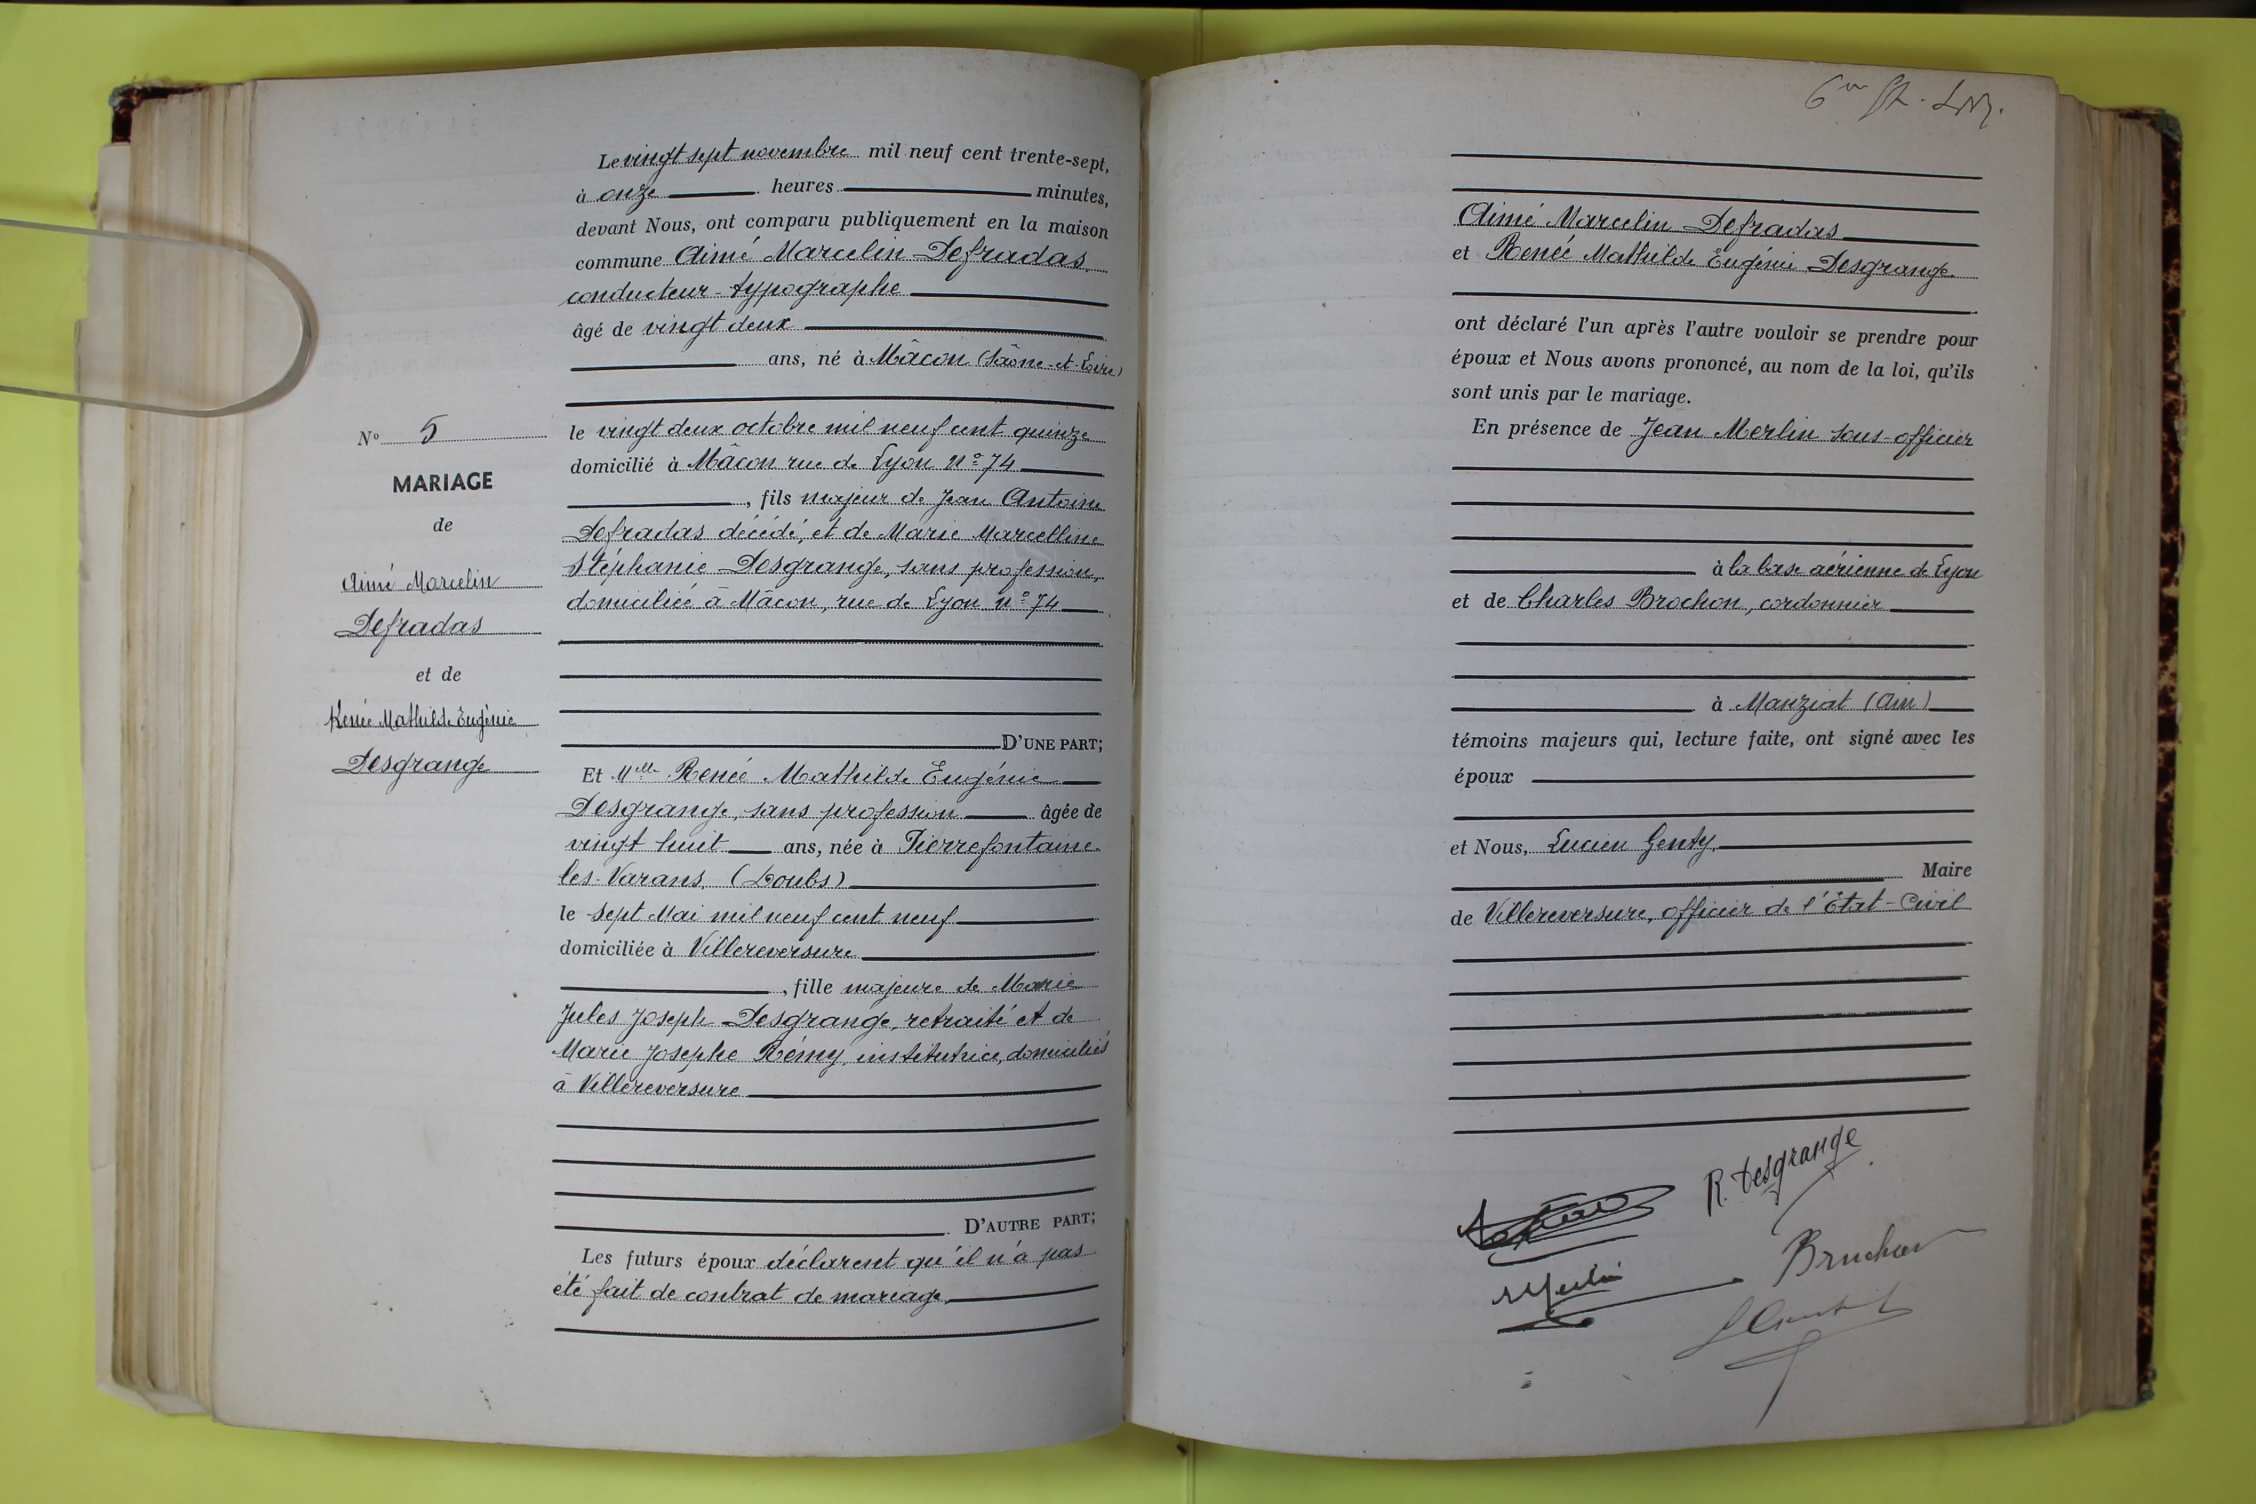 Le vingt sept novembre mil neuf cent trente-sept,
à onze heures minutes,
devant Nous, ont comparu publiquement en la maison
commune Aimé Marcelin Defradas,
conducteur-typographe
âgé de vingt deux
ans, né à Mâcon (Saône-et-Loire)
le vingt deux octobre mil neuf cent quinze
domicilié à Mâcon rue de Lyon n° 74
, fils majeur de Jean Antoine
Defradas décédé, et de Marie Marcelline
Stéphanie Desgrange, sans profession,
domiciliée à Mâcon, rue de Lyon n° 74
D'UNE PART;
Et Mlle Renée Mathilde Eugénie
Desgrange, sans profession âgée de
vingt huit ans, née à Pierrefontaine-
les-Varans (Doubs)
le sept Mai mil neuf cent neuf
domiciliée à Villereversure
, fille majeure de Marie
Jules Joseph Desgrange, retraité et de
Marie Josephe Rémy, institutrice, domiciliés
à Villereversure
D'AUTRE PART;
Les futurs époux déclarent qu'il n'a pas
été fait de contrat de mariage.
N° 5
MARIAGE
de
Aimé Marcelin
Defradas
et de
Renée Mathilde Eugénie
Desgrange
Aimé Marcelin Defradas
et Renée Mathilde Eugénie Desgrange
ont déclaré l'un après l'autre vouloir se prendre pour
époux et Nous avons prononcé, au nom de la loi, qu'ils
sont unis par le mariage.
En présence de Jean Merlin sous-officier
à la base aérienne de Lyon
et de Charles Brochon, cordonnier
à Manziat (Ain)
témoins majeurs qui, lecture faite, ont signé avec les
époux
et Nous, Lucien Genty,
Maire
de Villereversure, officier de l'État-Civil
R. Desgrange
Merlin
Brochon